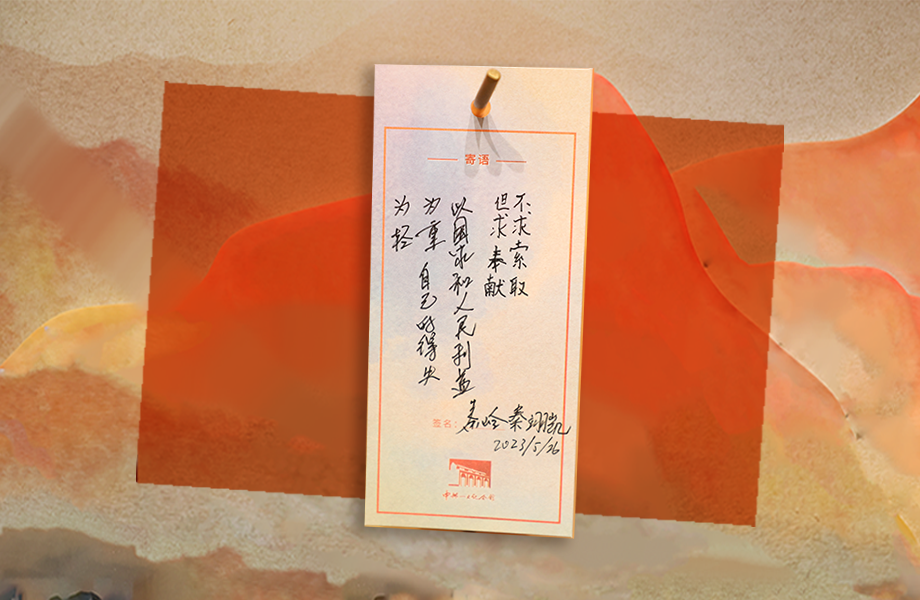 寄语
不求索取
但求奉献
以国家和人民利益
为重 自己的得失
为轻
签名:秦岭 秦翊凯
2023/5/26